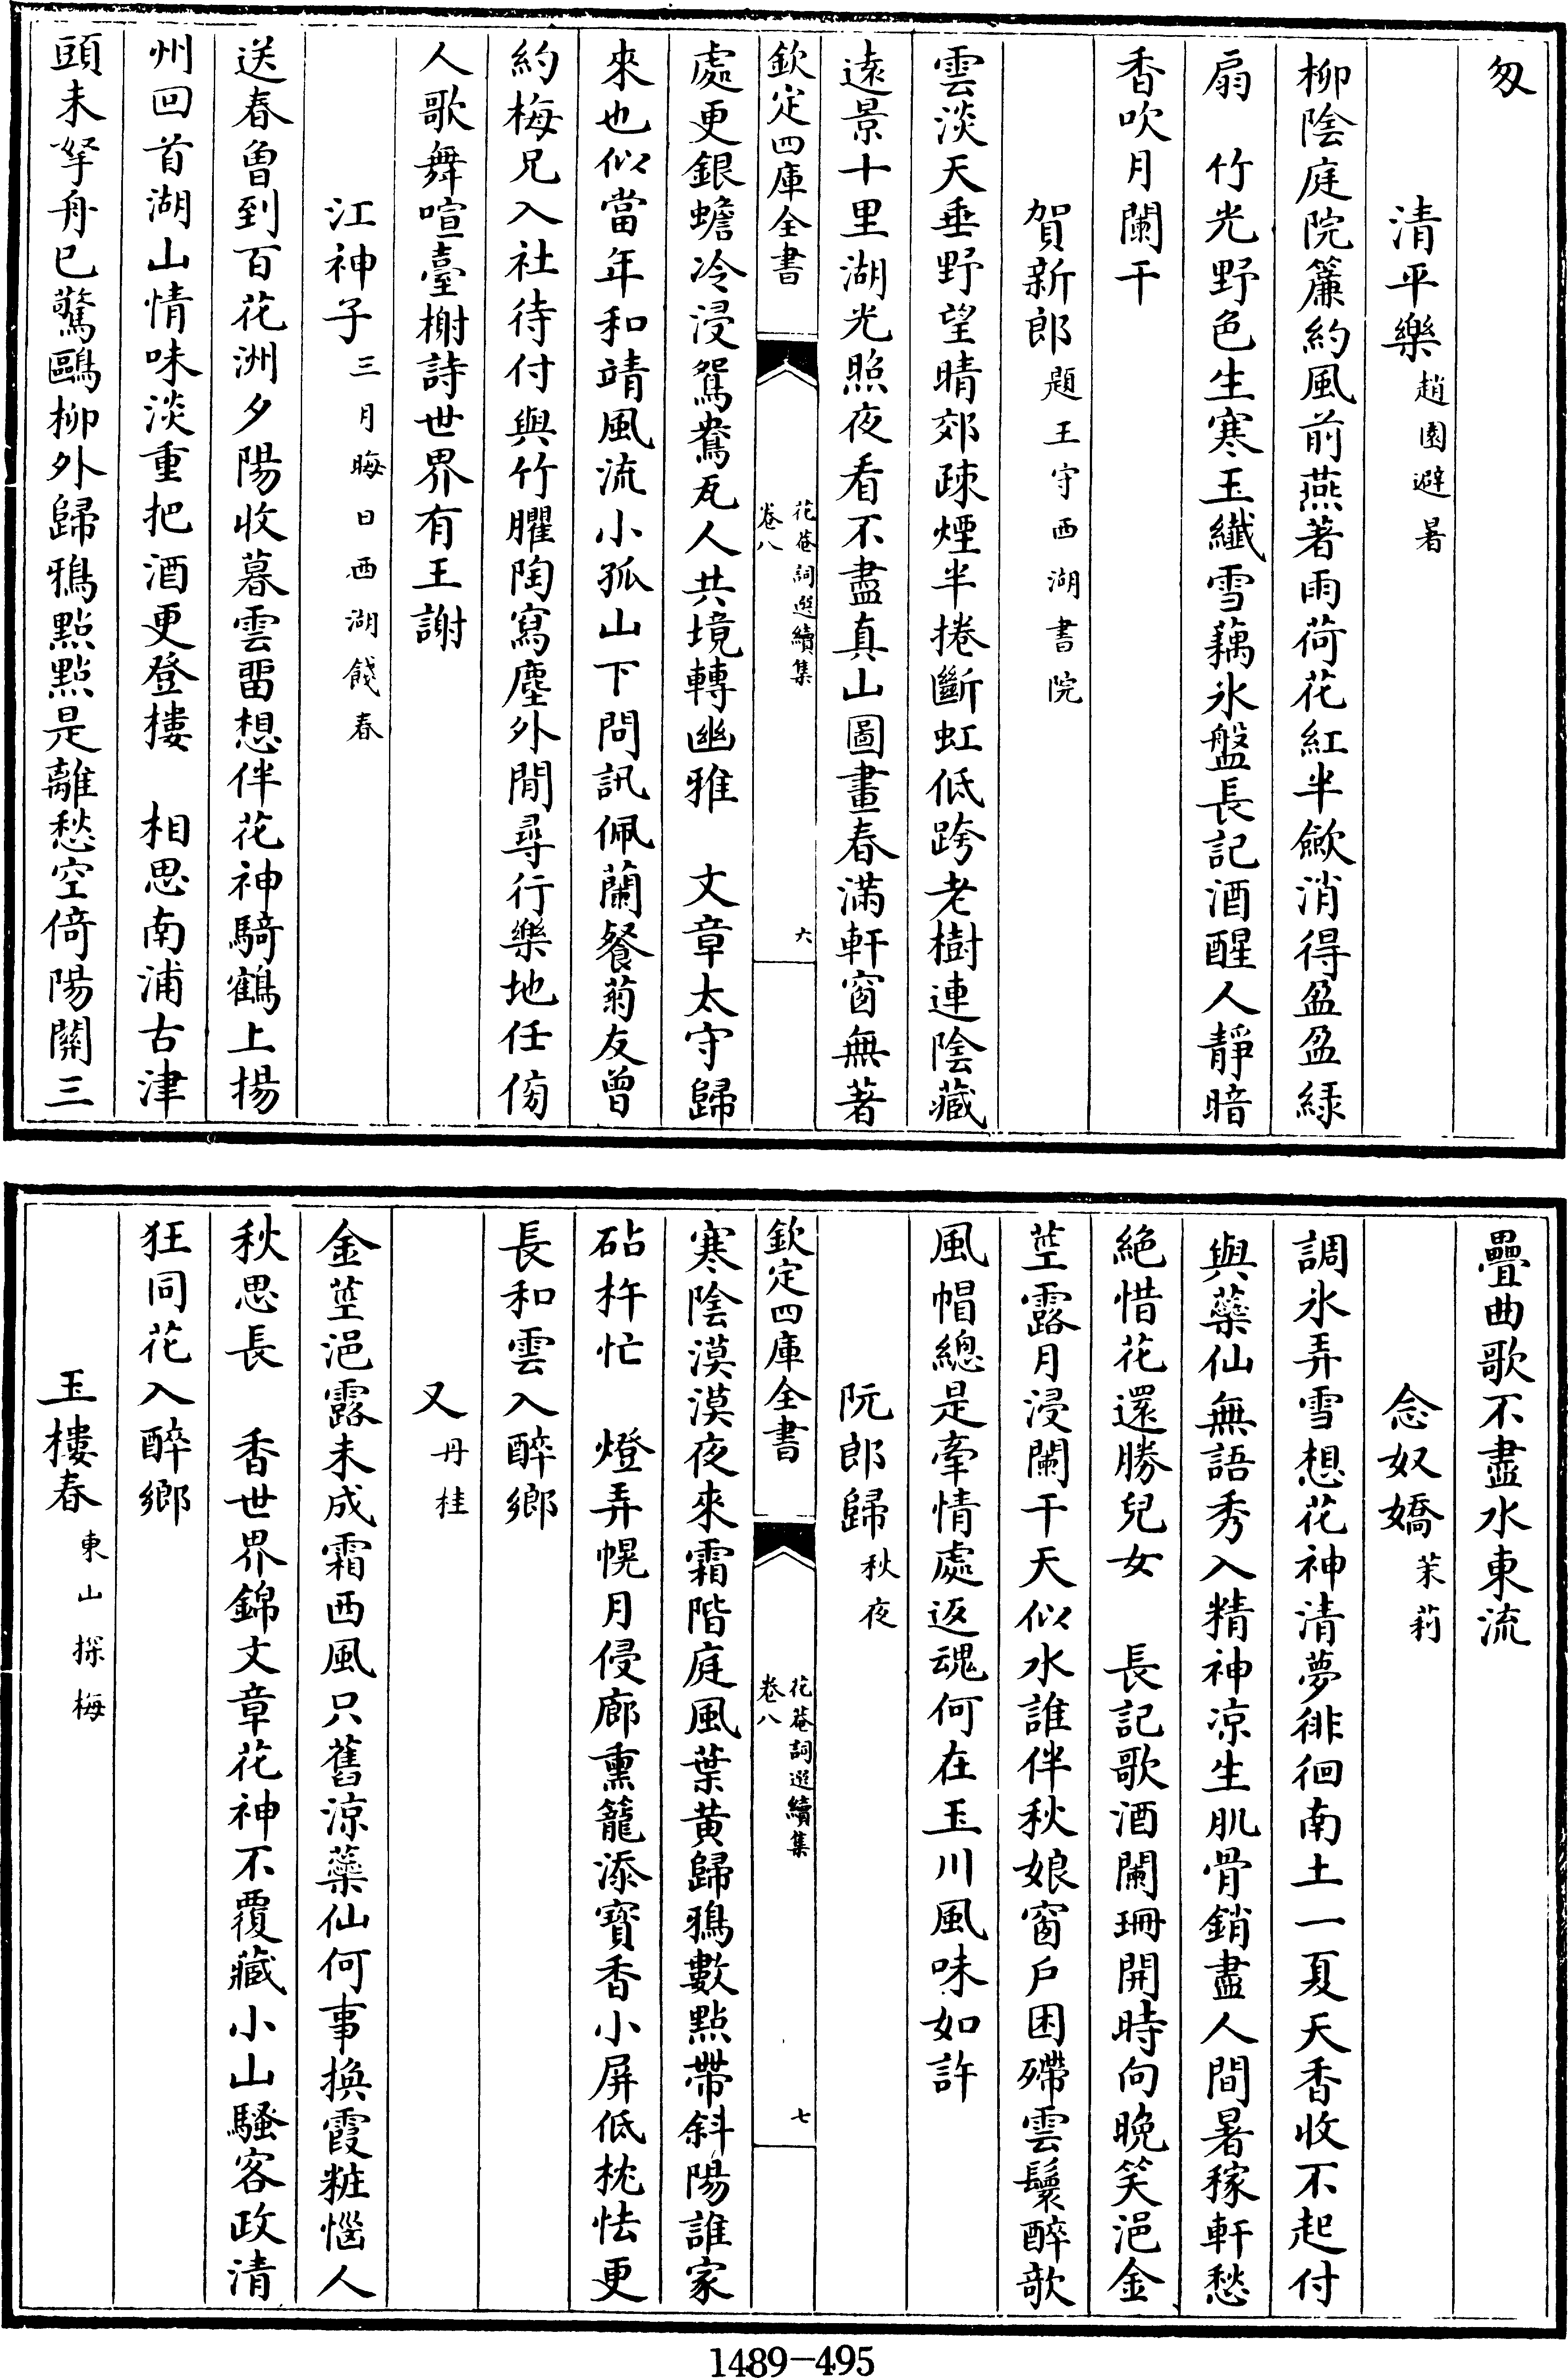 匆
清平樂趙園避暑
柳陰庭院簾約風前燕著雨荷花紅半歛消得盈盈緑
扇　竹光野色生寒玉纎雪藕氷盤長記酒醒人靜暗
香吹月闌干
賀新郎題王守西湖書院
雲淡天垂野望晴郊疎煙半捲斷虹低跨老樹連陰藏
遠景十里湖光照夜看不盡真山圖畫春滿軒窗無著
欽定四庫全書
花菴詞選續集
卷八
六
處更銀蟾冷浸鴛鴦瓦人共境轉幽雅　文章太守歸
來也似當年和靖風流小孤山下問訊佩蘭餐菊友曾
約梅兄入社待付與竹臞陶寫塵外閒尋行樂地任傍
人歌舞喧臺榭詩世界有王謝
江神子三月晦日西湖餞春
送春曾到百花洲夕陽收暮雲留想伴花神騎鶴上揚
州回首湖山情味淡重把酒更登樓　相思南浦古津
頭未拏舟已驚鷗柳外歸鴉點點是離愁空倚陽關三
疊曲歌不盡水東流
念奴嬌茉莉
調氷弄雪想花神清夢徘徊南土一夏天香收不起付
與蘂仙無語秀入精神凉生肌骨銷盡人間暑稼軒愁
絶惜花還勝兒女　長記歌酒闌珊開時向晚笑浥金
莖露月浸闌干天似水誰伴秋娘窗戶困殢雲鬟醉欹
風帽總是牽情處返魂何在玉川風味如許
阮郎歸秋夜
欽定四庫全書
花菴詞選續集
卷八
七
寒陰漠漠夜來霜階庭風葉黄歸鴉數點帶斜陽誰家
砧杵忙　燈弄幌月侵廊熏籠添寳香小屏低枕怯更
長和雲入醉鄉
又丹桂
金莖浥露未成霜西風只舊涼蘂仙何事換霞粧惱人
秋思長　香世界錦文章花神不覆藏小山騷客政清
狂同花入醉鄉
玉樓春東山探梅
1489—495